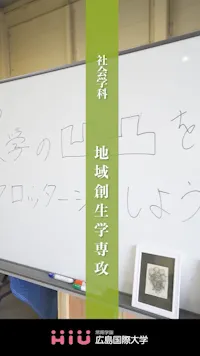 社会学科
地域創生学専攻
学の凹凸を
フロッタージュしよう
HIU
常翔学園
広島国際大学